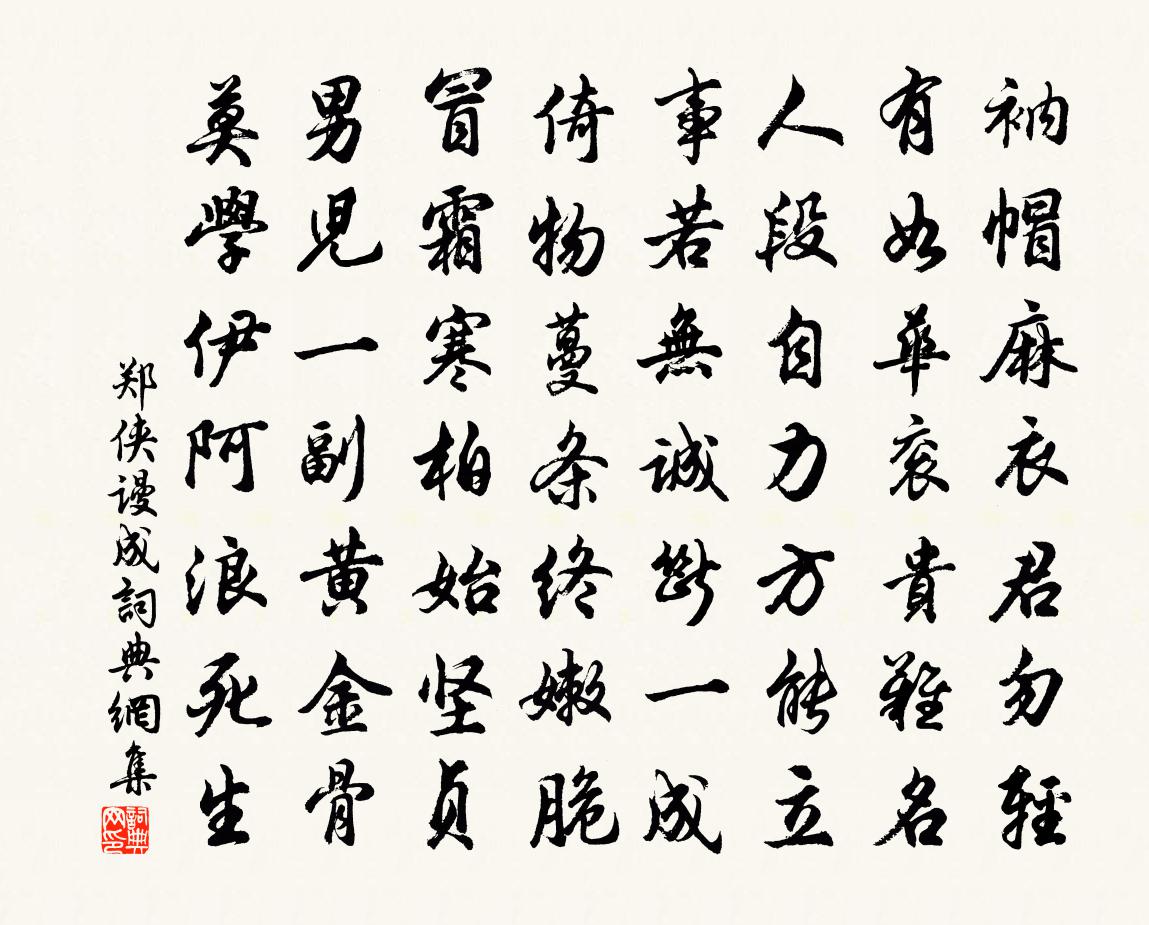 衲帽麻衣君勿轻
有如華衮貴難名
人段自力方能立
事若無誠斷一成
倚物蔓条终嫩脆
冒霜寒柏始坚贞
男児一副黄金骨
莫學伊阿浪死生
郑侠谩成詞典網集
詞典网印